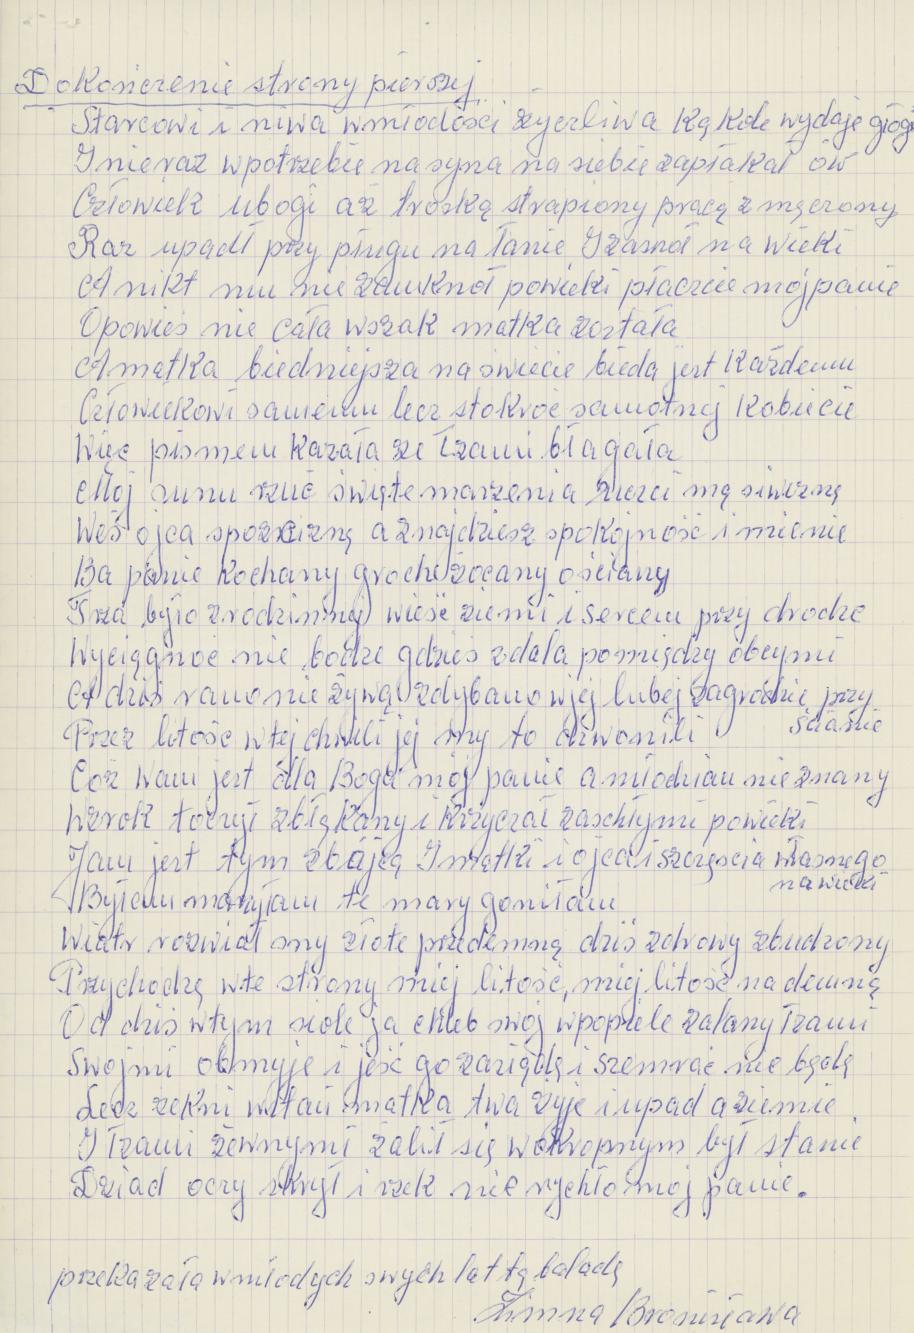 Dokończenie strony pierszej
Starcowi i niwa wmłodości życzliwa kąkole wydaje głogi
I nieraz wpotrzebie nasyna nasiebie zapłakał ów
Człowiek ubogi aż troską strapiony pracą zmęczony
Raz upadł przy pługu na łanie I zasnoł na wieki
A nikt mu nie zamknoł powieki płaczcie mój panie
Opowieś nie cała wszak matka została
A matka biedniejsza naswiecie bieda jest każdemu
Człowiekowi samemu lecz stokroć samotnej kobiecie
Więc pismem kazała ze łzami błagała
Mój sunu rzuć święte marzenia
Weś ojca a znajdziesz spokojność i mienie
Ba panie kochany groch
było zrodzinnej ziemi i sercem przy drodze
Wyciągnoć nie bodze gdzieś zdala pomiędzy obcymi
A dziś rano nie żywą zdybano wjej lubej zagrodzie przy
ścianie
Przez litość wtej chwili jej my to dzwonili
Coż wam jest dla Boga mój panie a młodzian nieznany
Wzrok toczył zbłąkany i krzyczał zaschłymi powieki
Jam jest tym zbójcą I matki i ojca i szczęscia własnego
nawieki
Byłem marzyłam te mary goniłam
Wiatr rozwiał sny złote przedemną dziś zdrowy zbudzony
Przychodzę wte strony miej litość, miej litość nademną
Od dziś wtym siole ja chleb swój wpopiele zalany łzami
Swojmi obmyje i jeść go i szemrać nie będę
Lecz rzekni wstań matka twa żyje i upad aziemie
I łzami żewnymi żalił się wokropnym był stanie
Dziad oczy skrył i rzek nie rychło moj panie.
przekazała wmłodych swych lat tą baladę
Zimna Bronisława